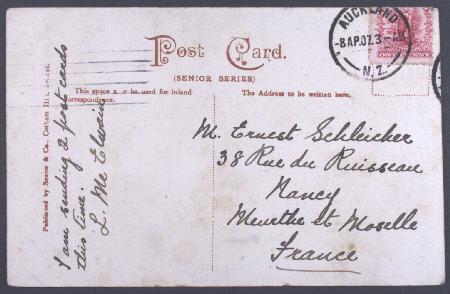 Post Card.
(SENIOR SERIES)
This space may be used for inland
correspondence.
The Address to be written here.
Published by Senior & Co., Cotham Hill,
I am sending 2 post cards
this time.
L. Mc Elwain
AUCKLAND
-8AP.07.3-
N.Z.
M. Ernest Schleicher
38 Rue du Ruisseau
Nancy
Meurthe et Moselle
France